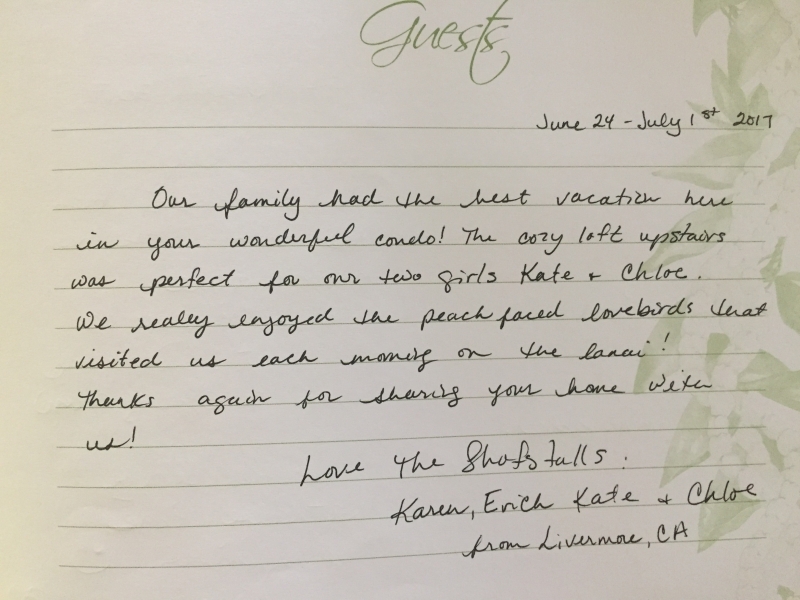 Guests
June 24 - July 1st 2017
Our family had the best vacation here
in your wonderful condo! The cozy loft upstairs
was perfect for our two girls Kate + Chloe.
We really enjoyed the peach faced lovebirds that
visited us each morning on the lanai!
Thanks again for sharing your home with
us!
Love The Shofstalls.
Karen, Erich Kate + Chloe
from Livermore, CA